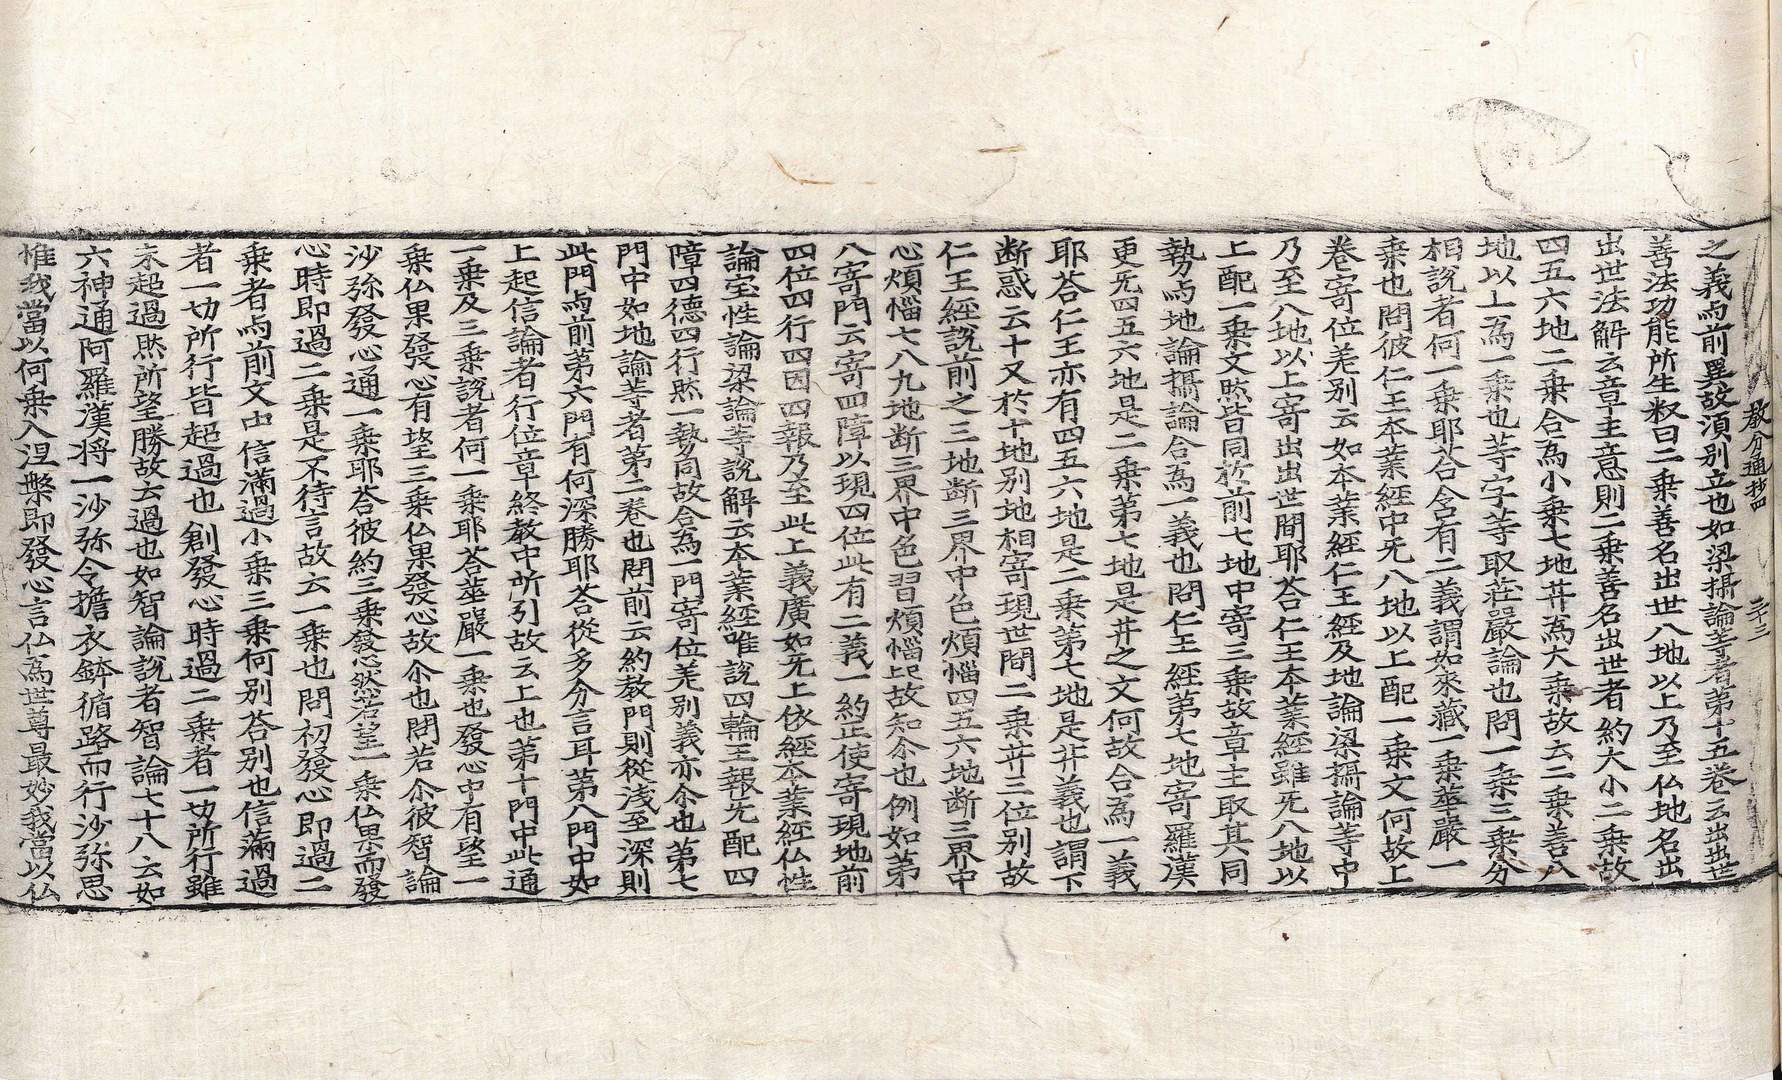 教分通抄四 三十三
之義与前異故湏別立也如梁攝論等者第十五卷云出出世
善法功能所生釈曰二乗善名出世八地以上乃至仏地名出
出世法解云章主意則二乗善名出世者約大小二乗故
四五六地二乗合為小乗七地𦬇為大乗故云二乗善八
地以上為一乗也等字等取莊嚴論也問一乗三乗分
相說者何一乗耶荅含有二義謂如來藏一乗華嚴一
乗也問彼仁王本業經中旡八地以上配一乗文何故上
卷寄位差别云如本業經仁王經及地論梁攝論等中
乃至八地以上寄出出世間耶荅仁王本業經雖旡八地以
上配一乗文然皆同於前七地中寄三乗故章主取其同
勢与地論攝論合為一義也問仁王經第七地寄羅漢
更旡四五六地是二乗第七地是𦬇之文何故合為一義
耶荅仁王亦有四五六地是二乗第七地是𦬇義也謂下
断惑云十又於十地别地相寄現世間二乗𦬇三位别故
仁王經說前之三地断三界中色煩惱四五六地断三界中
心煩惱七八九地断三界中色習煩惱是故知尒也例如第
八寄門云寄四障以現四位此有二義一約正使寄現地前
四位四行四因四報乃至此上義廣如旡上依經本業經仏性
論宝性論梁論等說解云本業經唯說四輪王報旡配四
障四德四行然一勢同故合為一門寄位差别義亦尒也第七
門中如地論等者第二卷也問前云約教門則從淺至深則
此門与前第六門有何深勝耶荅從多分言耳第八門中如
上起信論者行位章終教中所引故云上也第十門中此通
一乗及三乗說者何一乗耶荅華嚴一乗也發心中有望一
乗仏果發心有望三乗仏果發心故尒也問若尒彼智論
沙弥發心通一乗耶荅彼約三乗發心然若望一乗仏果而發
心時即過二乗是不待言故云一乗也問初發心即過二
乗者与前文中信滿過小乗三乗何别荅别也信滿過
者一切所行皆超過也創發心時過二乗者一切所行雖
未超過然所望勝故云過也如智論說者智論七十八云如
六神通阿羅漢将一沙弥令擔衣鉢循路而行沙弥思
惟我當以何乗入涅槃即發心言仏為世尊最妙我當以仏